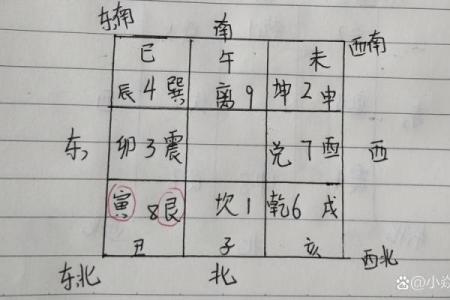 东南 南 西南
巳 午 未
辰 4 巽 离 9 坤 2 申
东 卯 3 震 兑 7 酉 西
寅 8 艮 坎 1 乾 6 戌
丑 子 亥
东北 北 西北
小焱